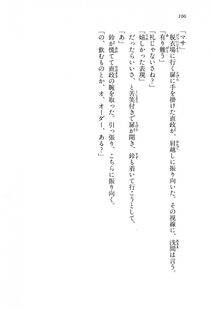 106
「マサ」
脱衣場に行く扉に手を掛けた直政が、肩越しに振り向いた。その視線に、浅間は言う。
「有り難う」
「礼じゃないさね？」
「嬉しかった表現」
だったらいいさ、と苦笑付きで扉が開き、鈴も着いて行こうとして、
「あ」
鈴が慌てて直政の腕を取った。引っ張り、こちらに振り向く。
「の、飲むものとか、オ、オーダー、ある？」